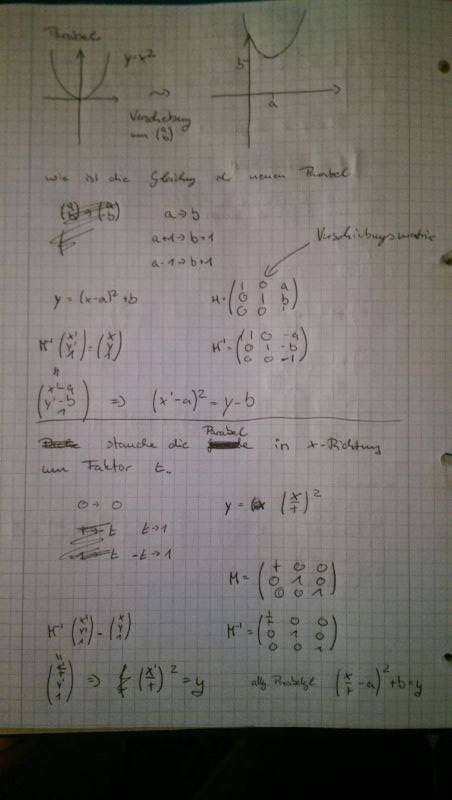 Parabel
y=x²
b
a
⇝
Verschiebung
um (a b)
wie ist die Gleichung der neuen Parabel
a→b
a+1→b+1
a-1→b+1
Verschiebungsmatrix
y = (x-a)² + b
M = (1 0 a
0 1 b
0 0 1)
M⁻¹ (x' y' 1) = (x y 1)
M⁻¹ = (1 0 -a
0 1 -b
0 0 -1)
(x'-a
y'-b
1) ⇒ (x'-a)² = y-b
stauche die Parabel in x-Richtung
um Faktor t.
0→0
y = (x/t)²
t→1
-t→1
M = (t 0 0
0 1 0
0 0 1)
M⁻¹ (x' y' 1) = (x y 1)
M⁻¹ = (1/t 0 0
0 1 0
0 0 1)
⇒ (x'/t)² = y
allg Parabelgl (x/t - a)² + b = y